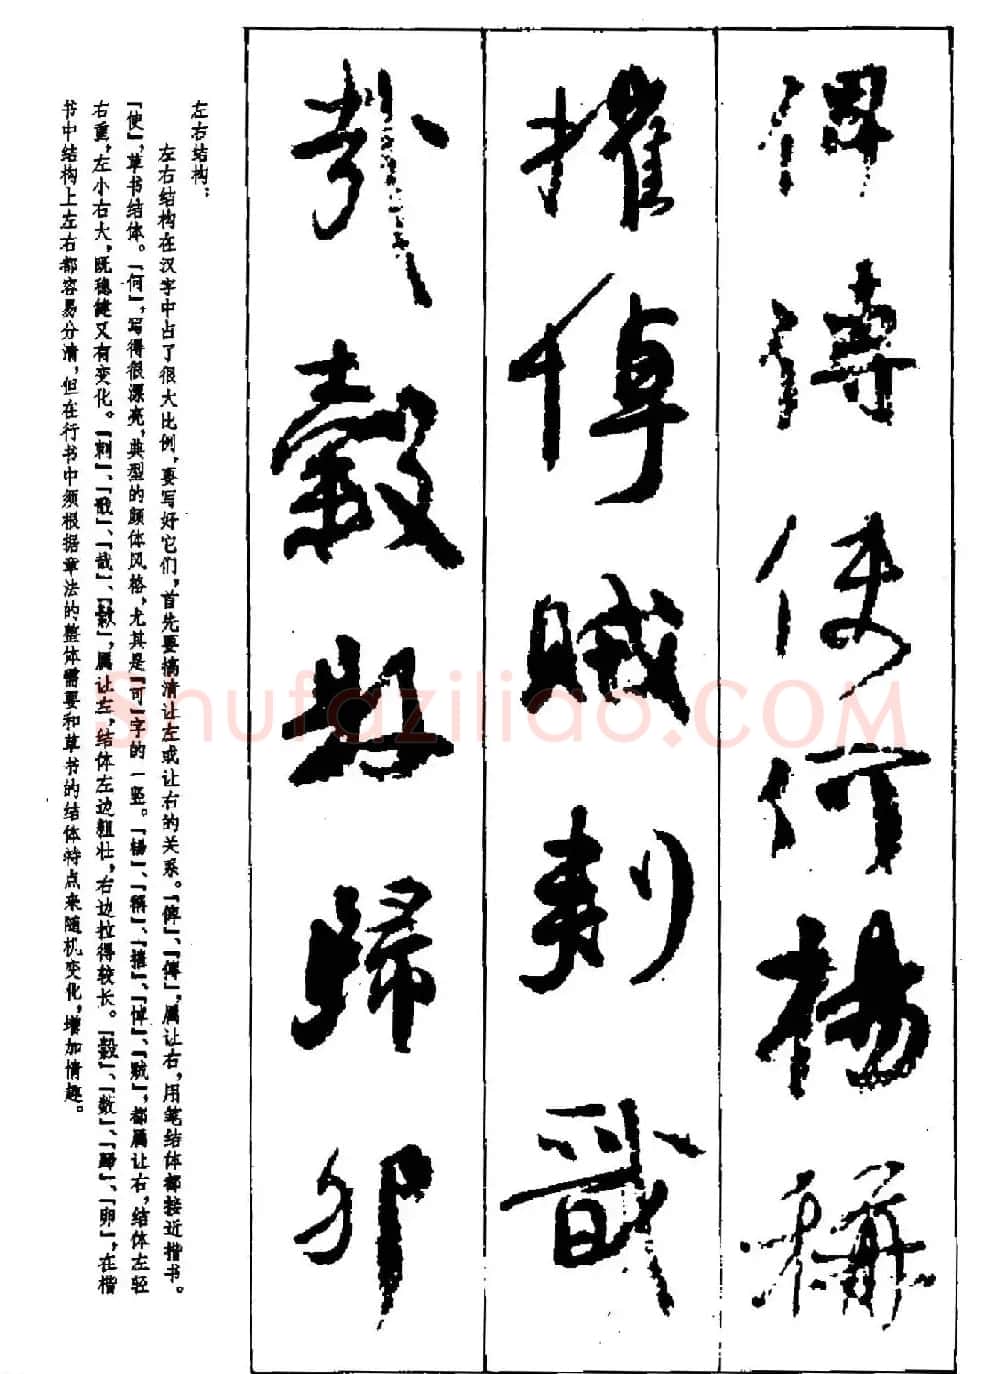 俾傅使何楊稱
摧倬賊刺戩
哉穀數歸卯
左右结构：
左右结构在汉字中占了很大比例，要写好它们，首先要搞清让左或让右的关系。「俾」、「傅」，属让右，用笔结体都接近楷书。
「使」，草书结体。「何」，写得很漂亮，典型的颜体风格，尤其是「可」字的一竖。「楊」、「稱」、「摧」、「倬」、「贼」，都属让右，结体左轻
右重，左小右大，既稳健又有变化。「刺」、「戬」、「哉」、「縠」，属让左，结体左边粗壮，右边拉得较长。「縠」、「数」、「歸」、「卵」，在楷
书中结构上左右都容易分清，但在行书中须根据章法的整体需要和草书的结体特点来随机变化，增加情趣。
Shufaziliao.COM